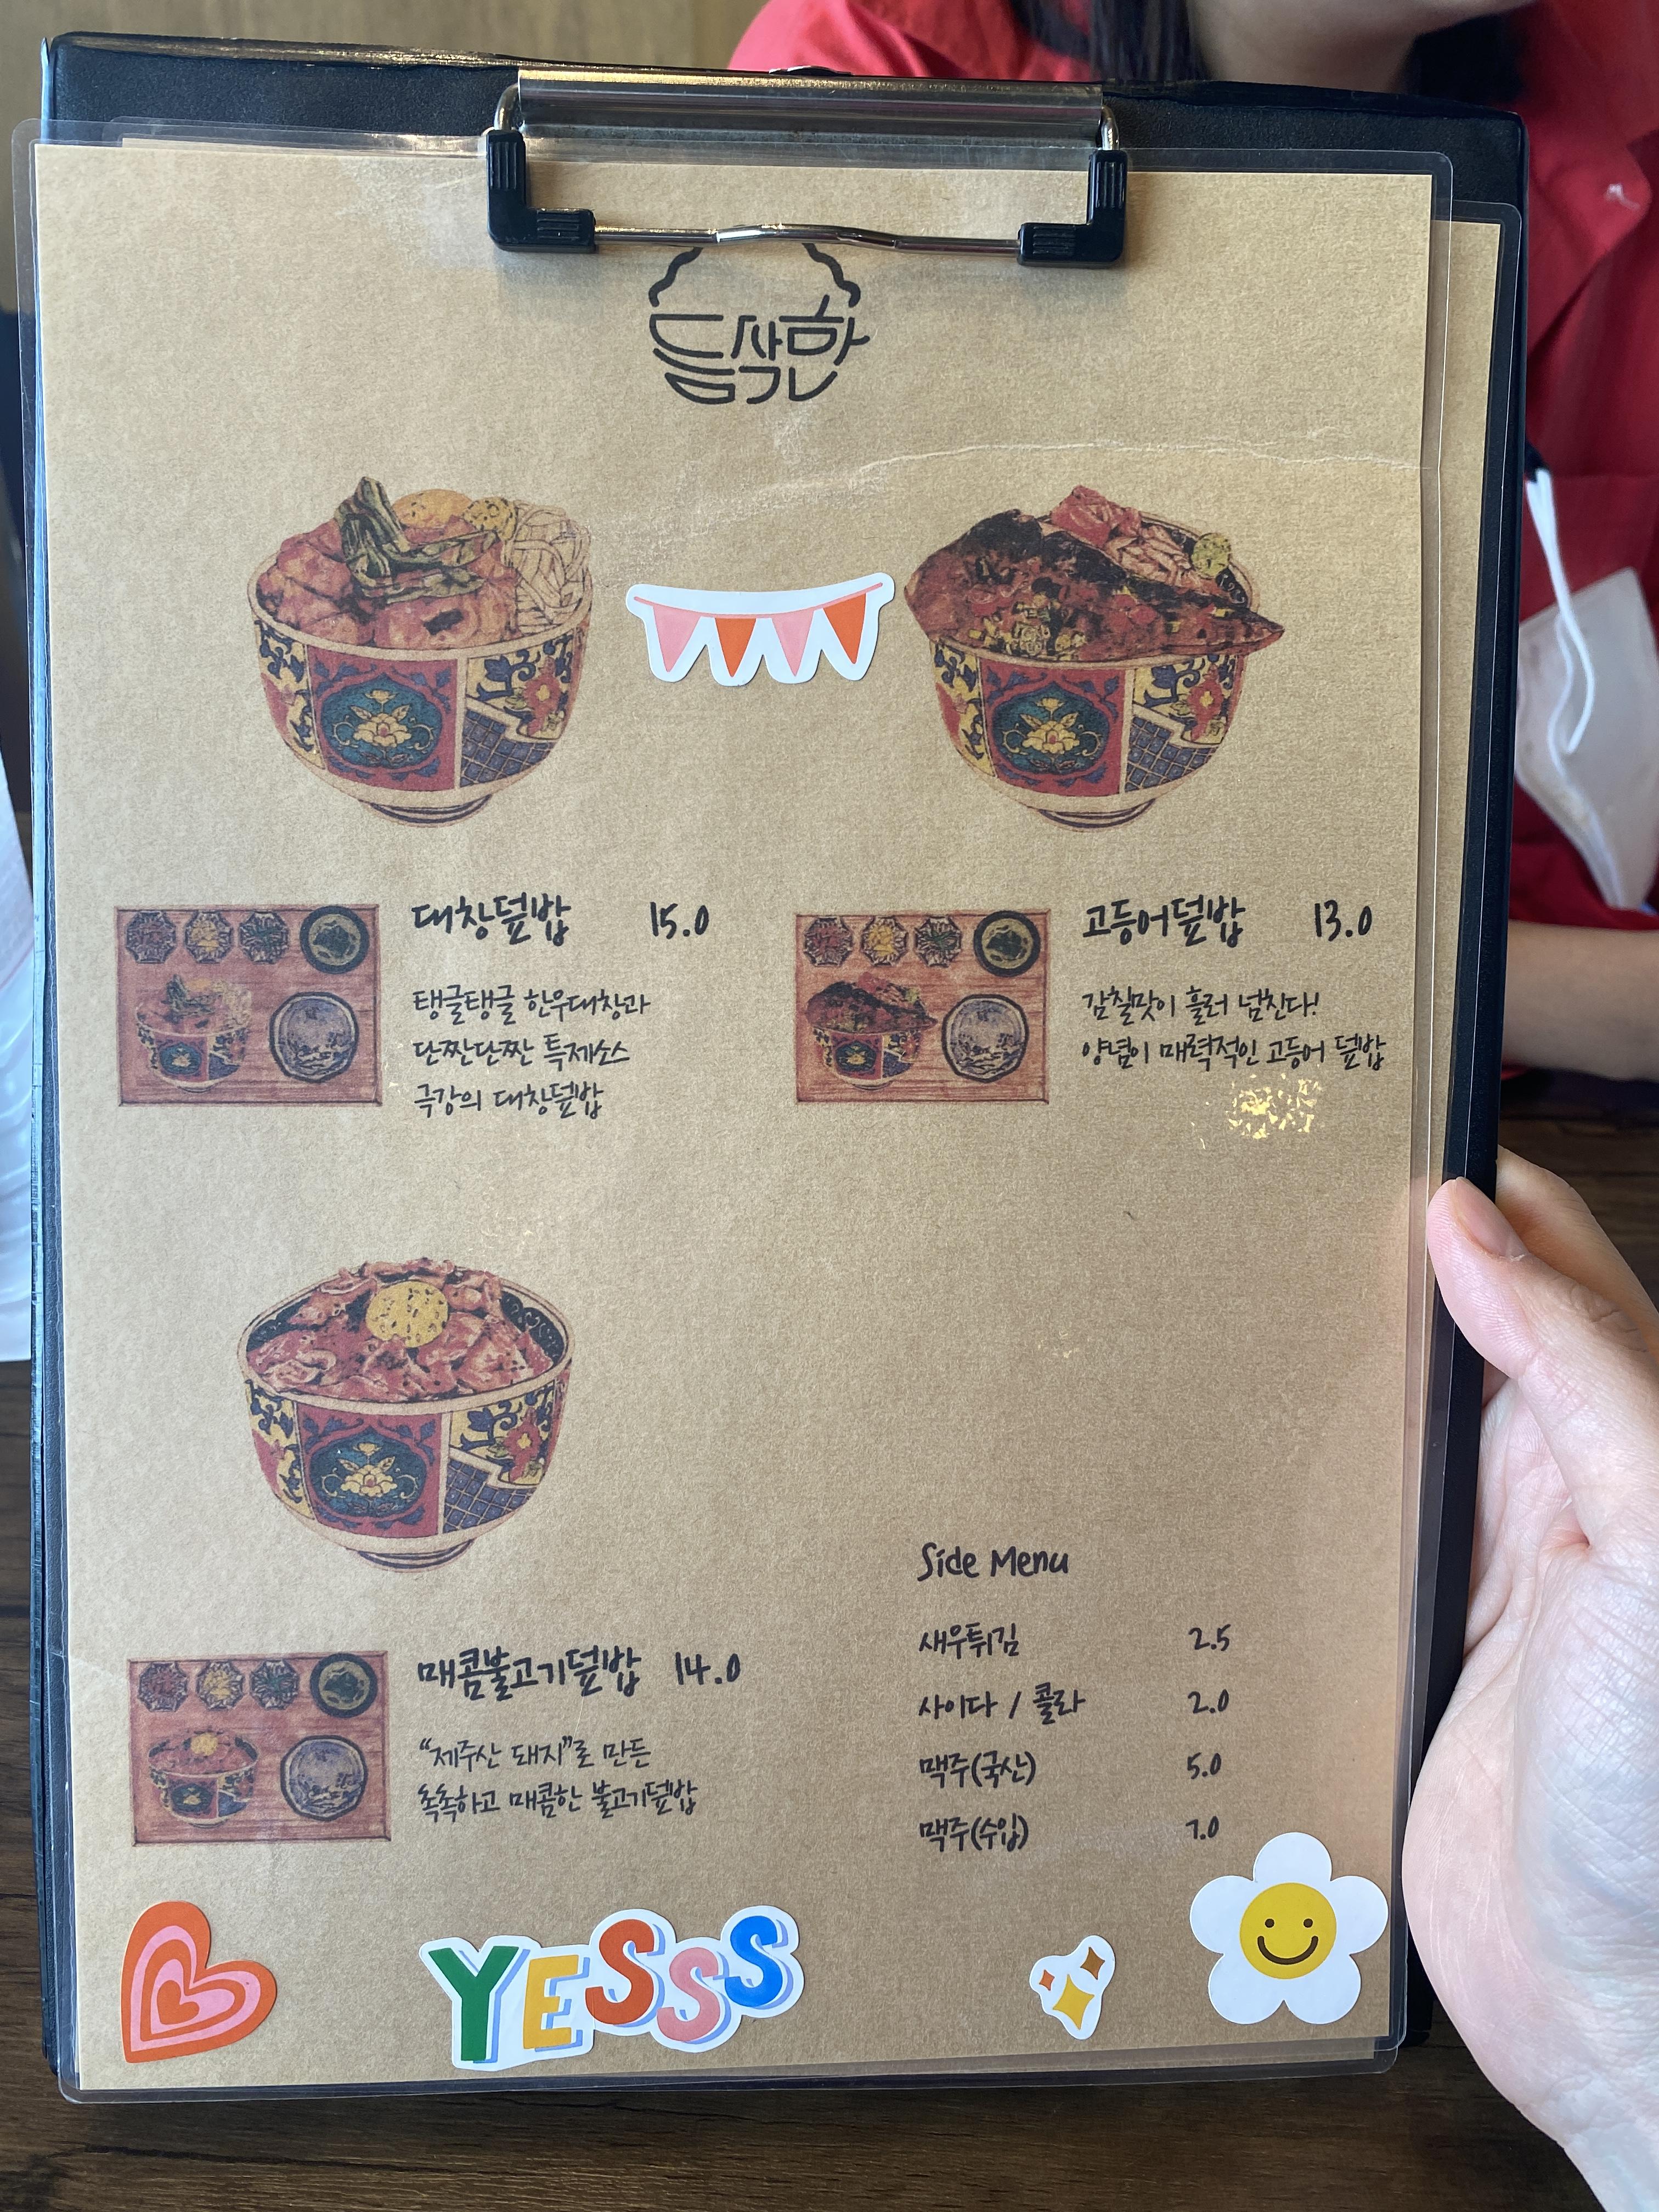 듬삭한
대창덮밥 15.0
탱글탱글 한우대창과
단짠단짠 특제소스
극강의 대창덮밥
고등어덮밥 13.0
감칠맛이 흘러 넘친다!
양념이 매력적인 고등어 덮밥
매콤불고기덮밥 14.0
"제주산 돼지"로 만든
촉촉하고 매콤한 불고기덮밥
Side Menu
새우튀김 2.5
사이다 / 콜라 2.0
맥주(국산) 5.0
맥주(수입) 7.0
YESSS